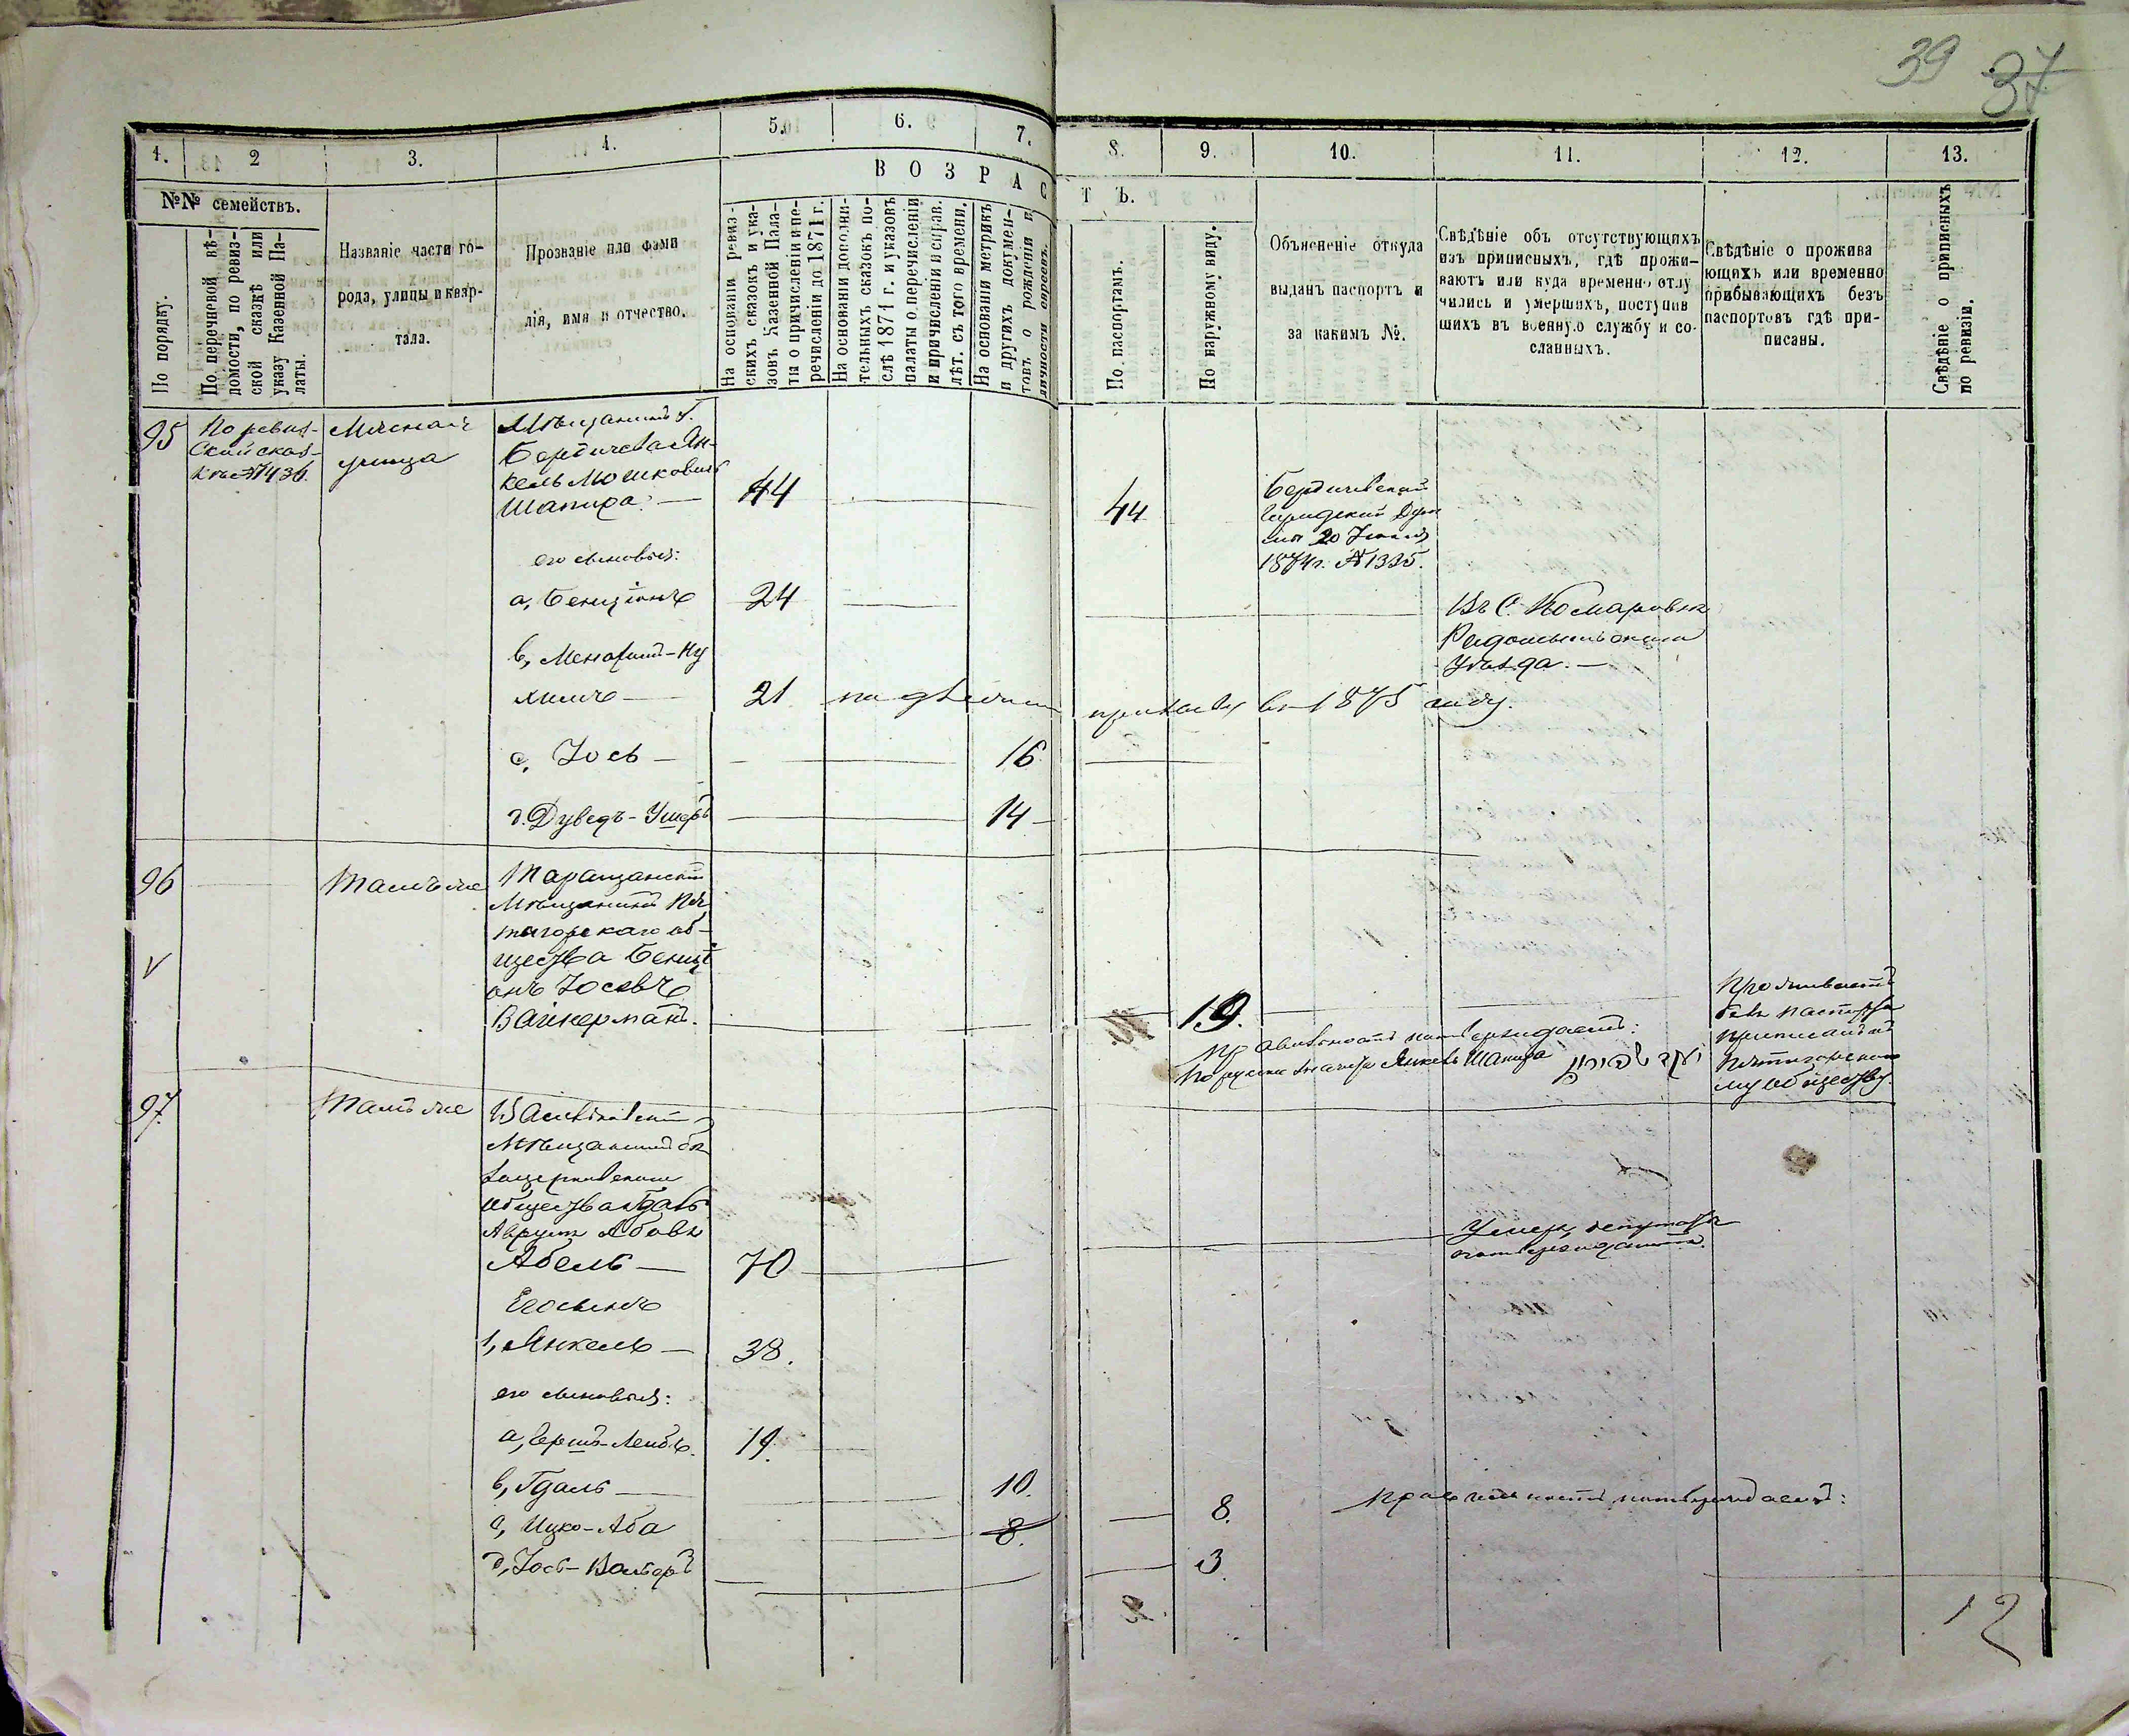 39 37
1. 2 3. 4. 5. 6. 7. 8. 9. 10. 11. 12. 13.
№№ семействъ.
В О З Р А С Т Ъ.
По порядку.
По перечневой вѣ-
домости, по ревиз-
ской сказкѣ или
указу Казенной Па-
латы.
Названіе части го-
рода, улицы и квар-
тала.
Прозваніе или фами
лія, имя и отчество.
На основаніи ревиз-
скихъ сказокъ и ука-
зовъ Казенной Пала-
ты о причисленіи и пе-
речисленіи до 1871 г.
На основаніи дополни-
тельныхъ сказокъ по-
слѣ 1871 г. и указовъ
палаты о перечисленіи
и причисленіи и справ.
лѣт. съ того времени.
На основаніи метрикъ
и другихъ докумен-
товъ о рожденіи и
личности евреевъ.
По паспортамъ.
По наружному виду.
Объясненіе откуда
выданъ паспортъ и
за какимъ №.
Свѣдѣніе объ отсутствующихъ
изъ приписныхъ, гдѣ прожи-
ваютъ или куда временно отлу
чились и умершихъ, поступив
шихъ въ военную службу и со-
сланныхъ.
Свѣдѣніе о прожива
ющихъ или временно
прибывающихъ безъ
паспортовъ гдѣ при-
писаны.
Свѣдѣніе о приписныхъ
по ревизіи.
95
По ревиз-
ской сказ-
кѣ № 436.
Мясная
улица
Мѣщанинъ г.
Бердичева Ян-
кель Мошковичъ
Шапира. —
44
44
Бердичевской
Городской Думы
20 Іюня
1874 г. № 1335.
его сыновья:
а, Бенціонъ
24
Въ С. Комаровка
Радомысльскаго
Уѣзда. —
в, Менахимъ-Ну
химъ —
21
призыву въ 1875 году.
с, Іось —
16
д. Дуведъ-Ушеръ
14
96
Тамъ же
Таращанскій
Мѣщанинъ Пя
тигорскаго об-
щества Бенці
онъ Іосевъ
Вайнерманъ.
19.
Проживаетъ
безъ паспорта
приписанъ къ
Пятигорско
му обществу.
правильность подтверждаетъ:
Янкель Шапира
97
Тамъ же
Васильковскій
Мѣщанинъ бѣ
лоцерковскаго
общества Гдаль
Аврумъ Абовъ
Абель —
70
Умеръ, депутаты
подтверждаютъ.
Его сынъ
1, Янкель —
38.
его сыновья:
а, Гершъ-Лейбъ.
19.
в, Гдаль
10.
с, Ицко-Аба
8.
8.
правильность подтверждаемъ:
д, Іось-Вольфъ
3.
2.
12